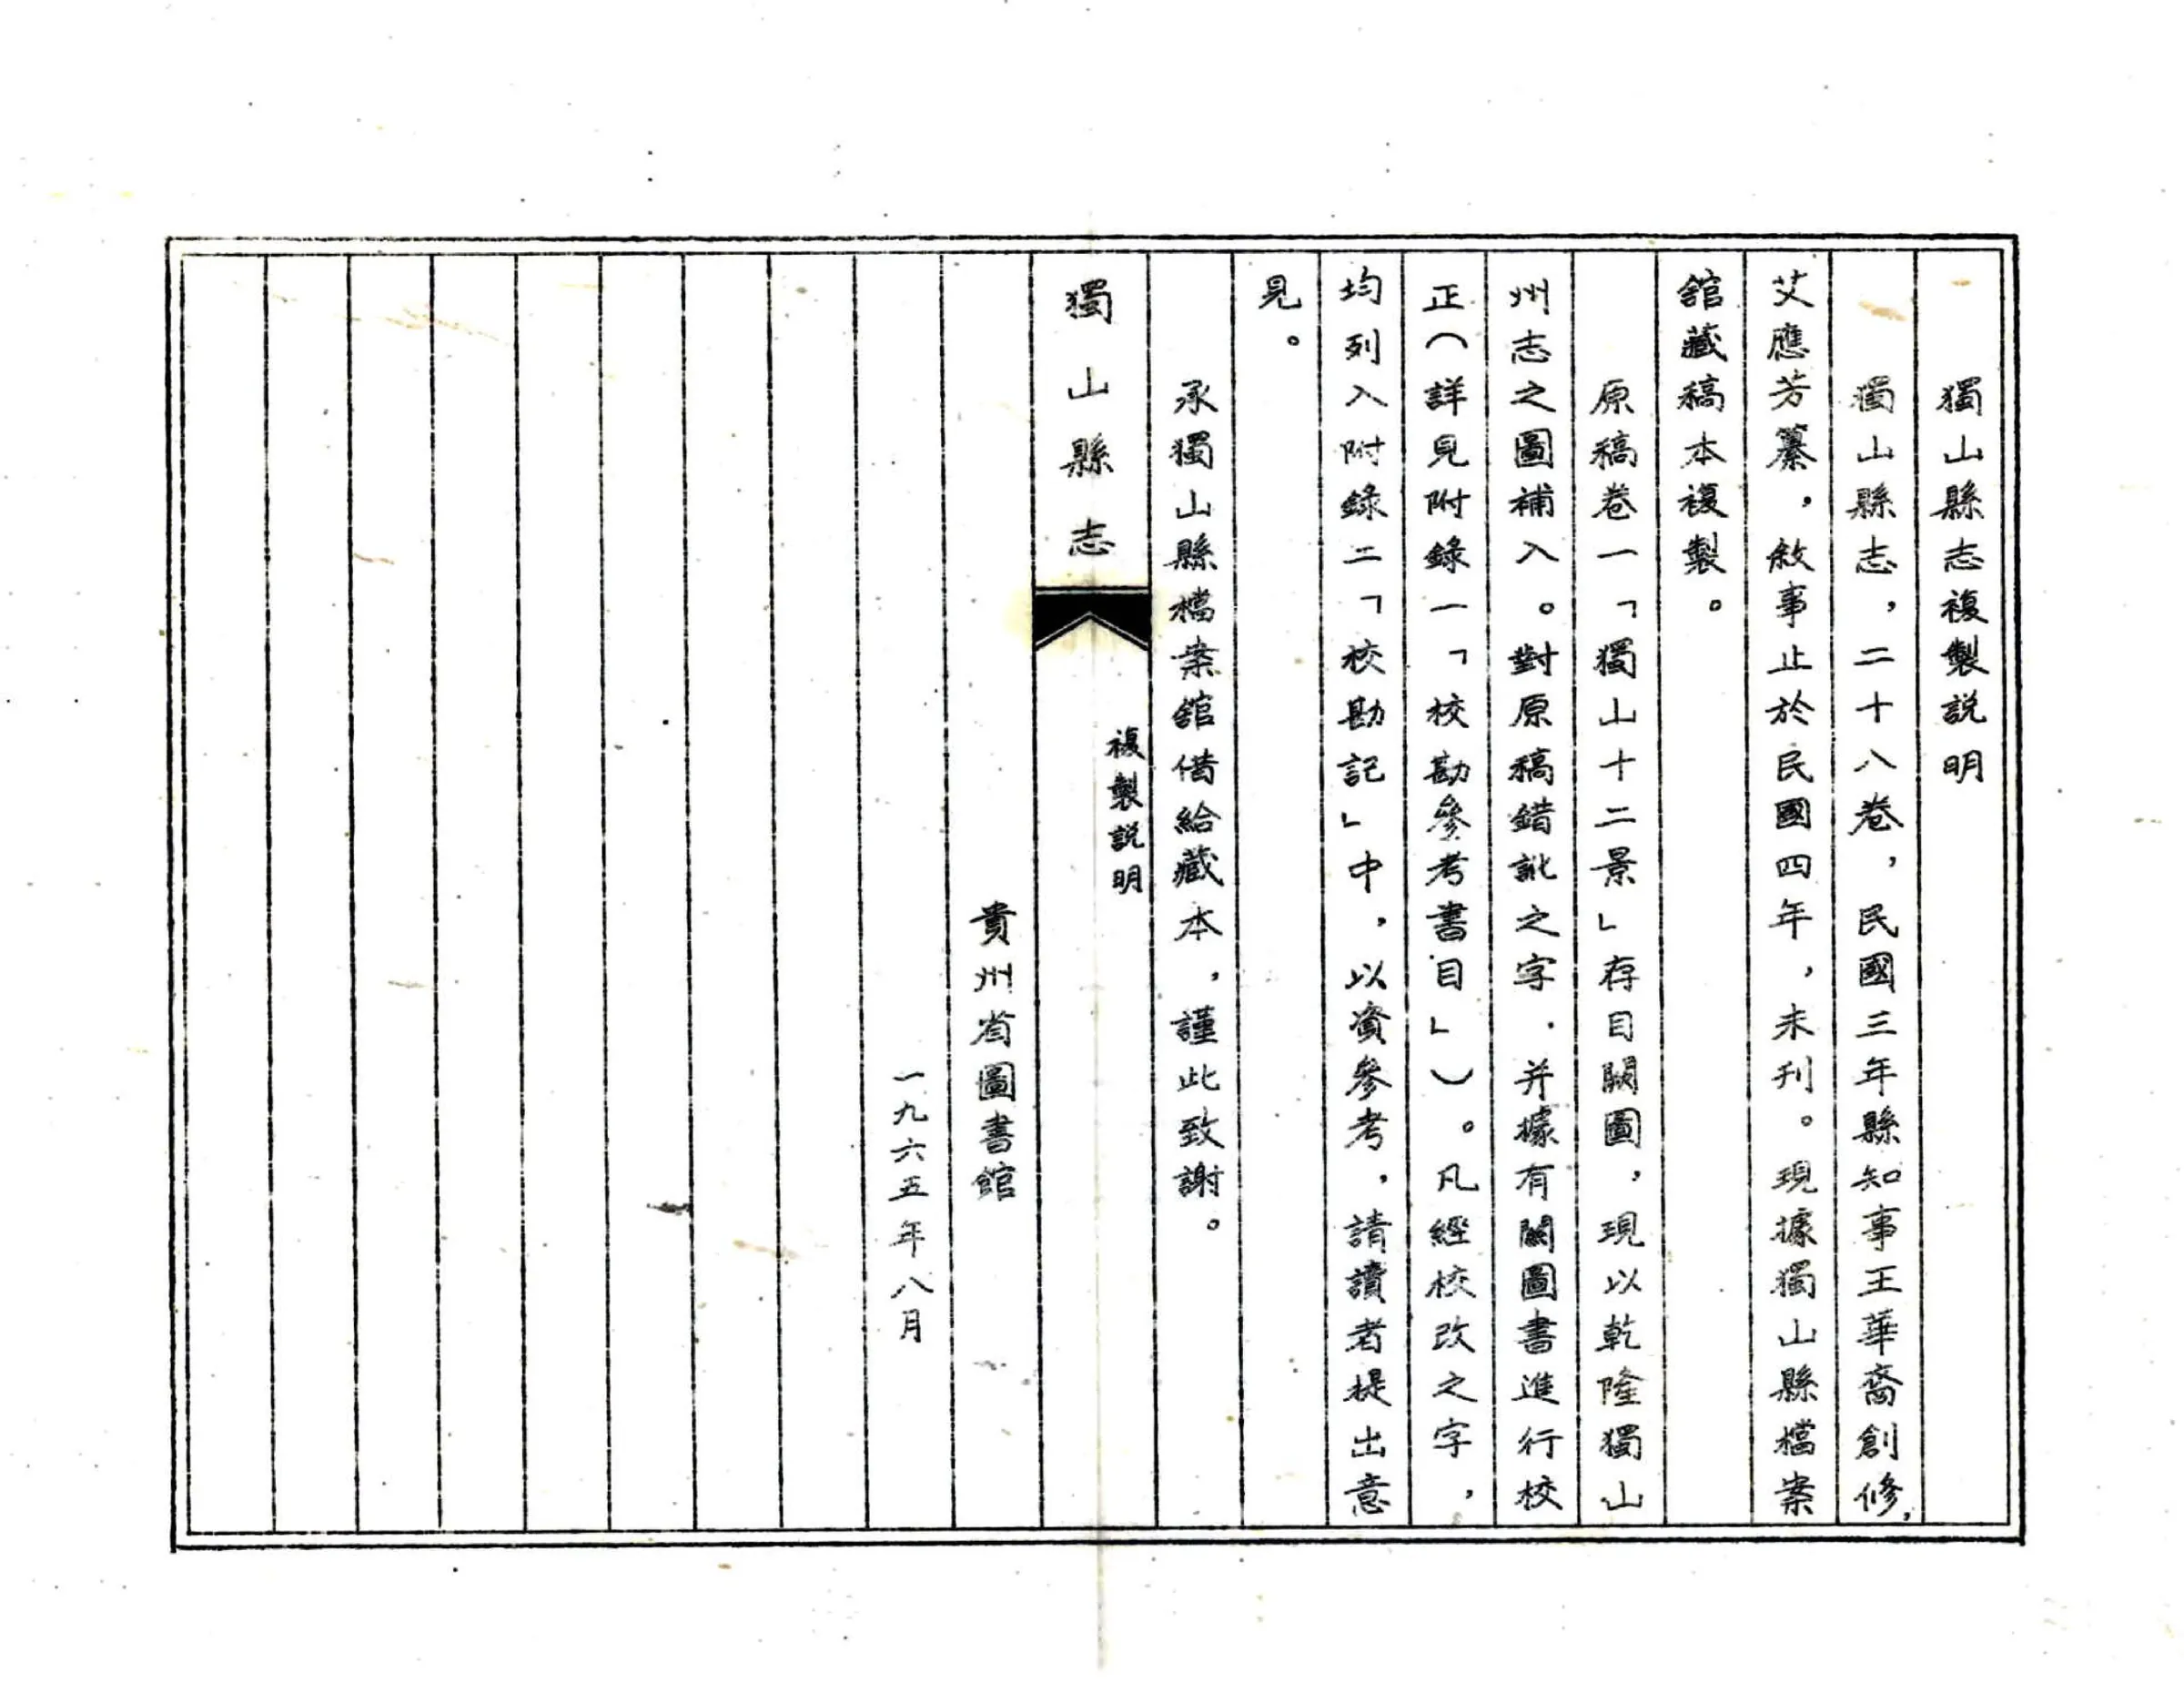 獨山縣志複製説明
獨山縣志，二十八卷，民國三年縣知事王華裔創修，
艾應芳纂，敘事止於民國四年，未刊。現據獨山縣檔案
舘藏稿本複製。
原稿卷一「獨山十二景」存目闕圖，現以乾隆獨山
州志之圖補入。對原稿錯訛之字，并據有關圖書進行校
正（詳見附錄一「校勘參考書目」）。凡經校改之字，
均列入附錄二「校勘記」中，以資參考，請讀者提出意
見。
承獨山縣檔案舘借給藏本，謹此致謝。
獨山縣志
複製説明
貴州省圖書舘
一九六五年八月